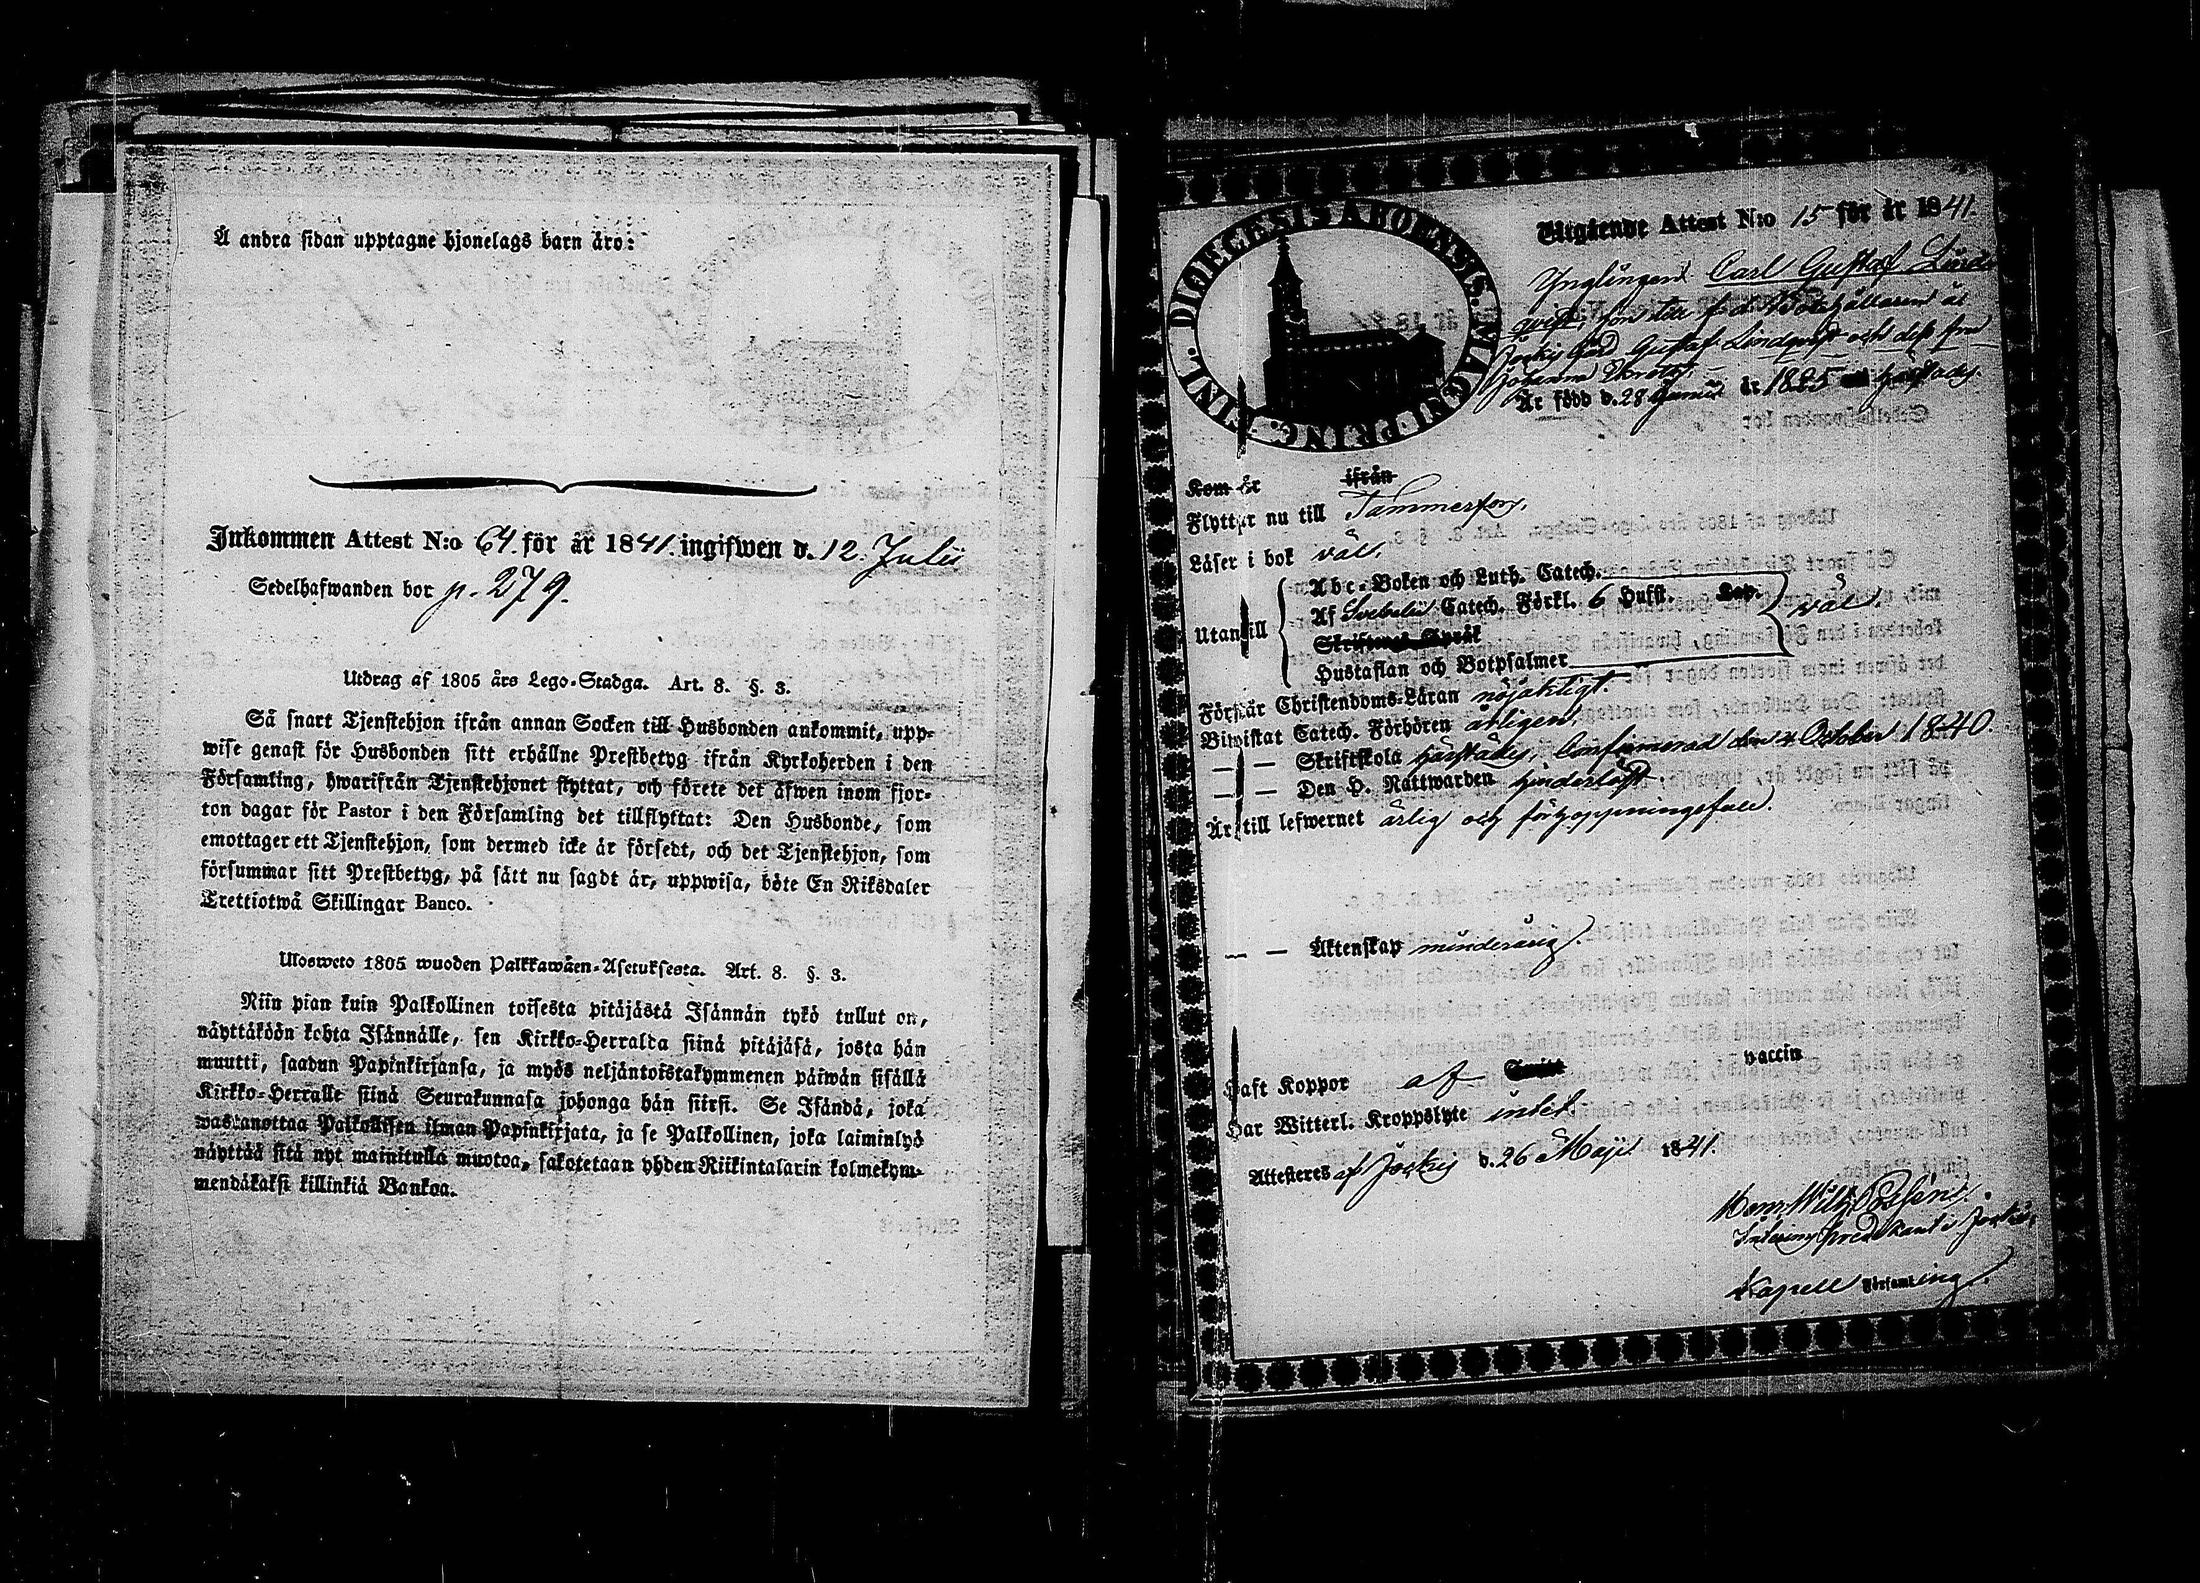 Å andra sidan upptagne hjonelags barn äro:
Inkommen Attest N:o 64. för år 1841. ingifwen d. 12. Julii
Sedelhafwanden bor p. 279.
Utdrag af 1805 års Lego-Stadga. Art. 8. §. 3.
Så snart Tjenstehjon ifrån annan Socken till Husbonden ankommit, upp-
wise genast för Husbonden sitt erhållne Prestbetyg ifrån Kyrkoherden i den
Församling, hwarifrån Tjenstehjonet flyttat, och förete det äfwen inom fjor-
ton dagar för Pastor i den Församling det tillflyttat: Den Husbonde, som
emottager ett Tjenstehjon, som dermed icke är försedt, och det Tjenstehjon, som
försummar sitt Prestbetyg, på sätt nu sagdt är, uppwisa, böte En Riksdaler
Trettiotwå Skillingar Banco.
Ulosweto 1805 wuoden Palkkawäen-Asetuksesta. Art. 8. §. 3.
Niin pian kuin Palkollinen toisesta pitäjästä Isännän tykö tullut on,
näyttäköön kohta Isännälle, sen Kirkko-Herralda siinä pitäjäsä, josta hän
muutti, saadun Papinkirjansa, ja myös neljäntoistakymmenen päiwän sisällä
Kirkko-Herralle siinä Seurakunnasa johonga hän siirsi. Se Isändä, joka
wastanottaa Palkollisen ilman Papinkirjata, ja se Palkollinen, joka laiminlyö
näyttää sitä nyt mainitulla muotoa, sakotetaan yhden Riikintalarin kolmekym-
mendäkaksi killinkiä Bankoa.
DIOECESIS ABOENSIS. MAGNI PRINC. FINL.
Utgående Attest N:o 15 för år 1841.
Ynglingen Carl Gustaf Lind-
qvist, son till f.d. Bokhållaren å
Jockis Gård Gustaf Lindqvist och dess fru
Johanna
Är född d. 28 Junii år 1825 härstädes.
Kom år ifrån
Flyttar nu till Tammerfors.
Läser i bok väl.
Utantill
Abc-Boken och Luth. Catech.
Af Svebelii Catech. Förkl. 6 Hufst. Lap. väl.
Skriftenes Språk
Hustaflan och Botpsalmer
Förstår Christendoms-Läran nöjaktigt.
Biwistat Catech. Förhören årligen.
— — Skriftskola härstädes, Confirmerad den 4 October 1840.
— — Den H. Nattwarden hinderlöst.
Är till lefwernet ärlig och förhoppningsfull.
— — Äktenskap minderårig.
Haft Koppor af Smitt vaccin
Har Witterl. Kroppslyte intet.
Attesteres af Jockis d. 26 Maji 1841.
Henr. Wilh.
Interims predikant i Jockis
Kapell Församling.